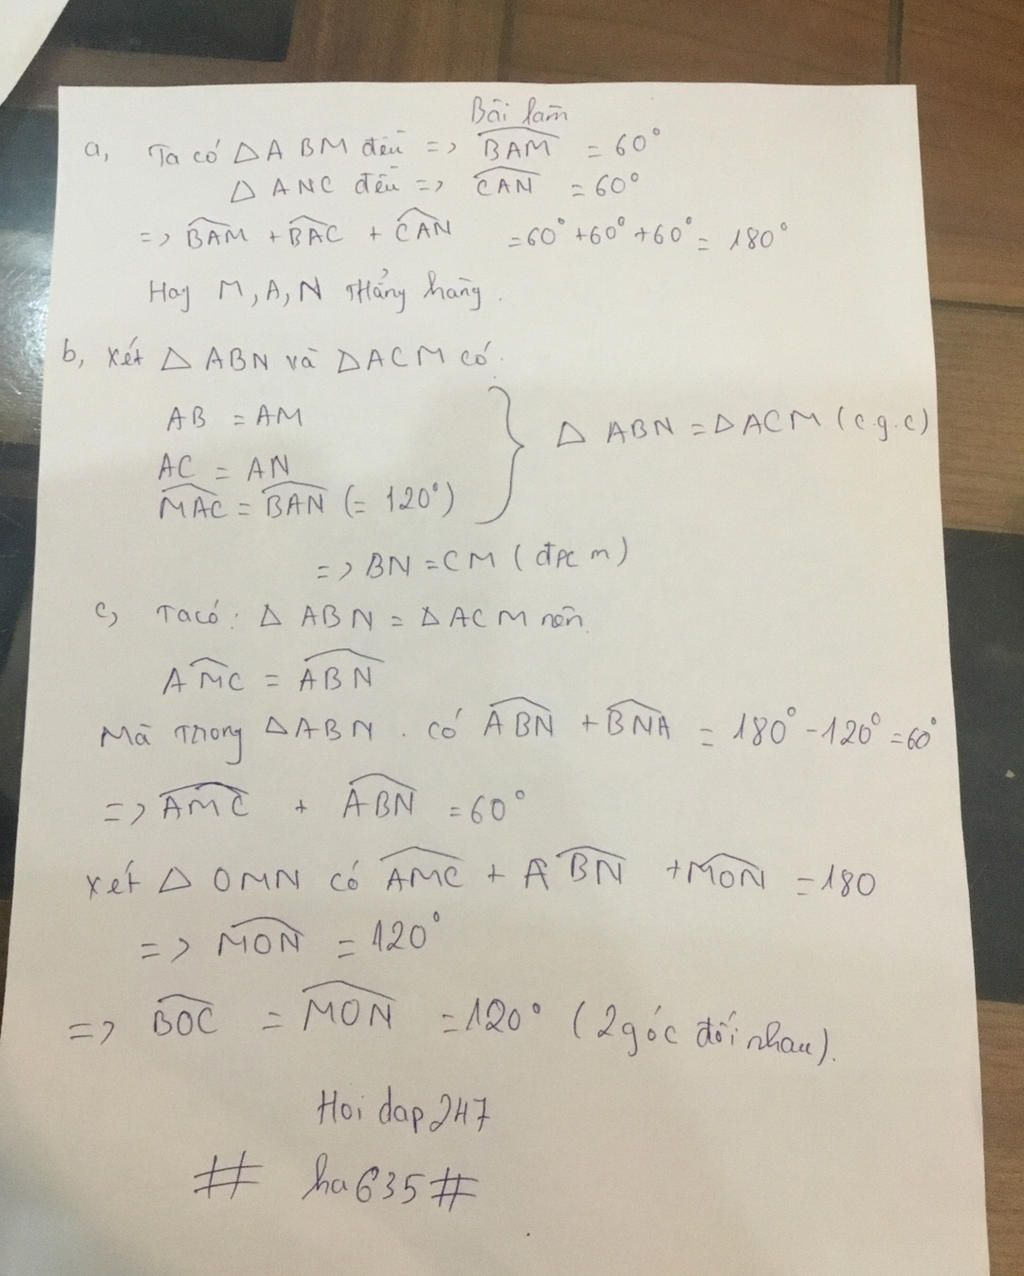 Bài làm
a, Ta có △ABM đều => BAM̂ = 60°
△ANC đều => CAN̂ = 60°
=> BAM̂ + BAĈ + CAN̂ = 60° + 60° + 60° = 180°
Hay M, A, N thẳng hàng.
b, xét △ABN và △ACM có.
AB = AM
AC = AN
MAĈ = BAN̂ (= 120°)
} △ABN = △ACM (c.g.c)
=> BN = CM (đpcm)
c, Ta có: △ABN = △ACM nên.
AMĈ = ABN̂
Mà Trong △ABN . có ABN̂ + BNÂ = 180° - 120° = 60°
=> AMĈ + ABN̂ = 60°
xét △OMN có AMĈ + ABN̂ + MON̂ = 180
=> MON̂ = 120°
=> BOĈ = MON̂ = 120° (2 góc đối nhau).
Hoi dap 247
# ha635#